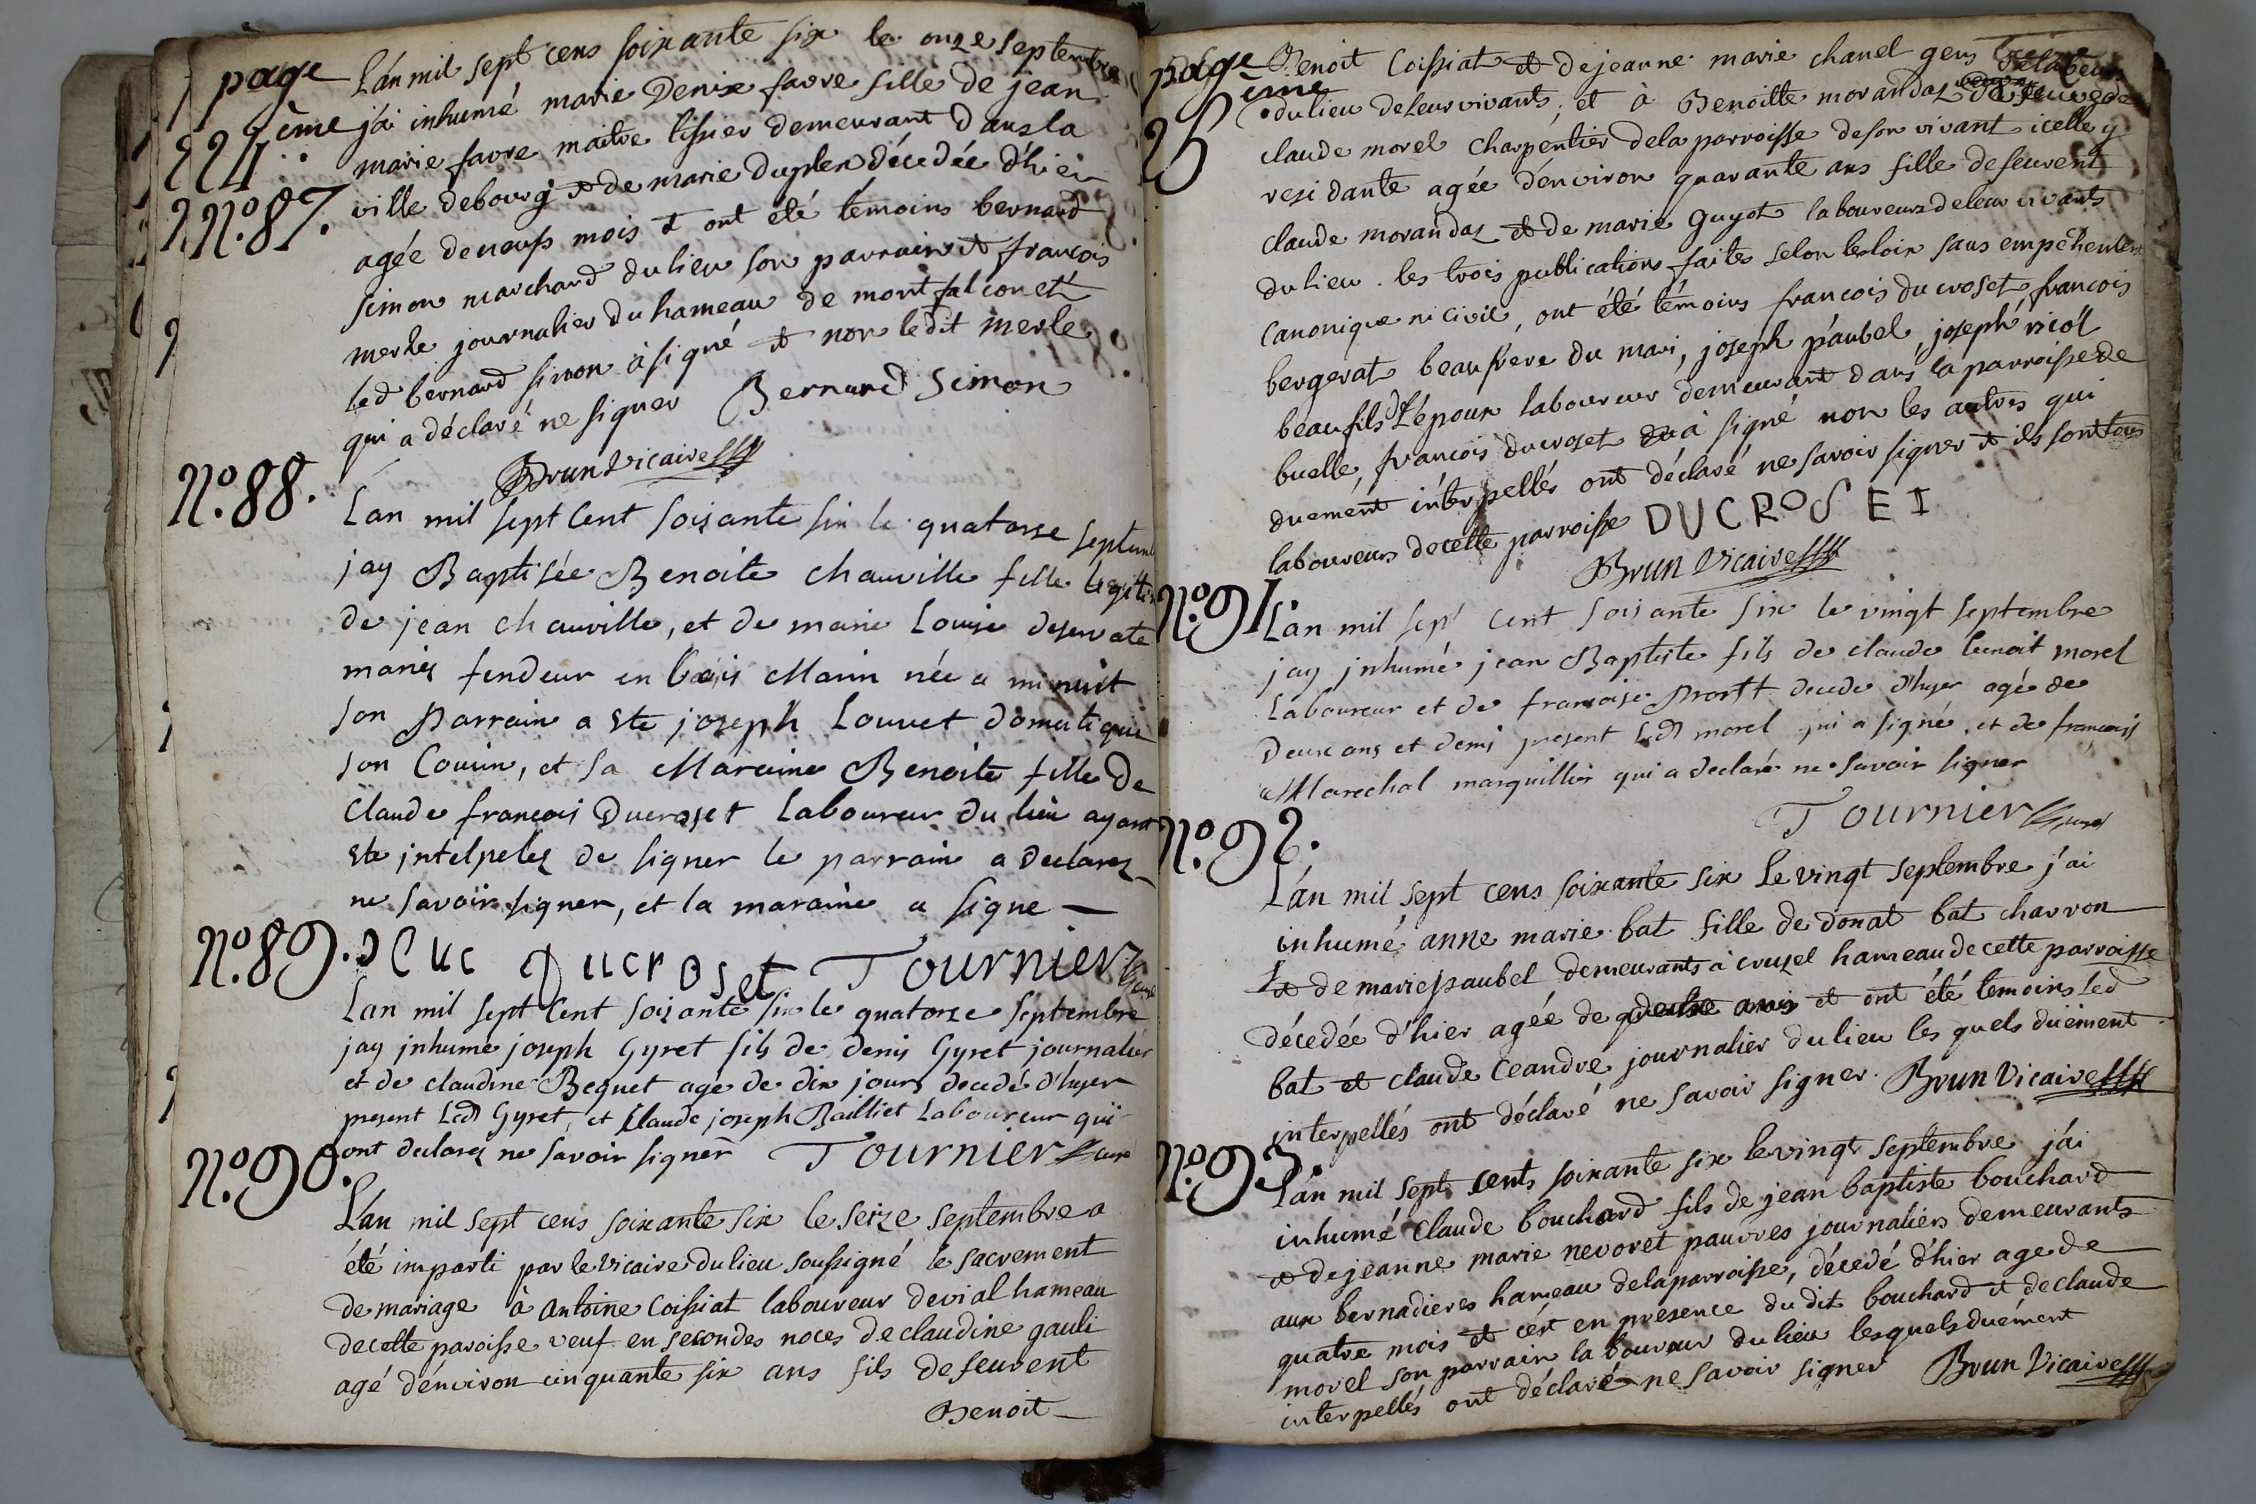 page
224ème
N.º87.
L'an mil sept cens soixante six le onze septembre
j'ai inhumé marie Denise favre fille de jean
marie favre maitre tissier demeurant dans la
ville de bourg et de marie duplex décedée d'hier
agée de neufs mois et ont été témoins bernard
simon marchand du lieu son parrain et francois
merle journalier du hameau de montfalconet
led bernard simon à signé et non le dit merle
qui a déclaré ne signer Bernard Simon
Brun Vicaire
N.º88.
Lan mil sept Cent soixante six le quatorse septemb
jay Baptisée Benoite chauville fille legiti
de jean chauville, et de marie Louise
mariez fendeur en bois Marin née a minuit
son parrain a ste joseph Louvet domestique
son Cousin, et sa Maraine Benoite fille De
Claude francois Ducroset Laboureur du lieu ayant
ste jntelpelez de signer le parrain a declarez
ne savoir signer, et la maraine a signe
N.º89.
Ducroset Tournier Cure
Lan mil sept Cent soixante six le quatorze septembre
jay jnhume joseph Gyret fils de denis Gyret journalier
et de claudine Bequet age de dix jours decedé d'hyer
present Led Gyret, et Claude joseph Bailliet Laboureur qui
ont declarez ne savoir signer Tournier Cure
N.º90.
L'an mil sept cens soixante six le seize septembre a
été imparti par le vicaire du lieu soussigné le sacrement
de mariage à antoine Coissiat laboureur de vial hameau
de cette paroisse veuf en secondes noces de claudine gauli
agé d'environ cinquante six ans fils de feurent
Benoit
page
ème
25
Benoit Coissiat et de jeanne marie chanel gens
du lieu de leur vivants, et à Benoitte morandaz veuve de
claude morel charpentier de la parroisse de son vivant icelle y
residante agée d'environ quarante ans fille de feurent
claude morandaz et de marie Guyot laboureurs de leur vivants
du lieu. les trois publications faites selon les loix sans empêhement
canonique ni civil, ont été témoins francois du croset, francois
bergerat beaufrere du mari, joseph paubel, joseph nicol
beaufils de l'époux laboureur demeurant dans la parroisse de
buelle, francois ducroset à signé non les autres qui
duement interpellés ont déclaré ne savoir signer et ils sont tous
laboureurs de cette parroisse DUCROSEI
Brun Vicaire
N.º91.
L'an mil sept cent soixante six le vingt septembre
jay jnhumé jean Baptiste fils de claude benoit morel
Laboureur et de francoise Prostt decede d'hyer agé de
Deux ans et demi present Led morel qui a signé, et de francois
Marechal marguillier qui a declaré ne savoir signer
Tournier Cure
N.º92.
L'an mil sept cens soixante six le vingt septembre j'ai
inhumé anne marie bat fille de donat bat charron
et de marie paubel demeurants à cruzel hameau de cette parroisse
décedée d'hier agée de et ont été temoins led
bat et claude Ceandre journalier du lieu les quels duement
interpellés ont déclaré ne savoir signer. Brun Vicaire
N.º93.
L'an mil sept cents soixante six le vingt septembre j'ai
inhumé Claude bouchard fils de jean baptiste bouchard
et de jeanne marie nevoret pauvres journaliers demeurants
aux bernadieres hameau de la parroisse, décedé d'hier age de
quatre mois et c'ést en présence du dit bouchard et de claude
morel son parrain laboureur du lieu lesquels duément
interpellés ont déclaré ne savoir signer Brun Vicaire